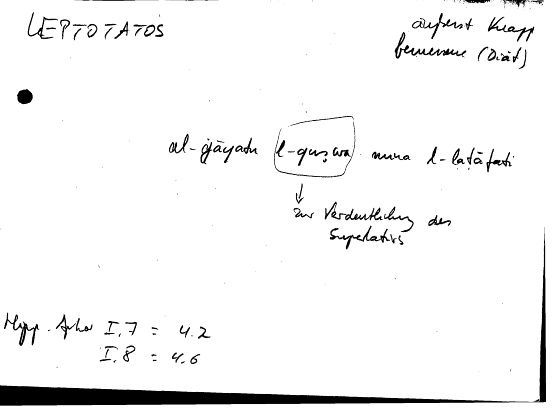 LEPTOTATOS
äußerst knapp
bemessene (Diät)
al-ġāyatu l-quṣwā mina l-laṭāfati
↓
zur Verdeutlichung des
Superlativs
Hipp. Aphor I,7 = 4.2
I,8 = 4.6